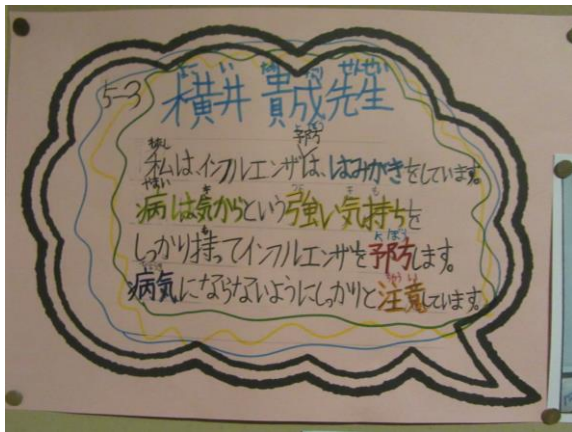 5-3 横井 貴成先生
私はインフルエンザは、はみがきをしています。
予防
病は気からという強い気持ちを
しっかり持ってインフルエンザを予防します。
病気にならないようにしっかりと注意しています。